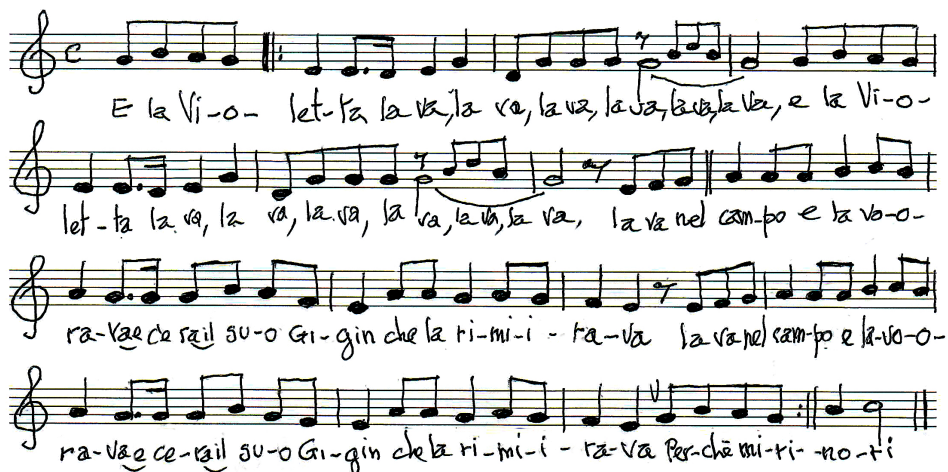 E la Vi-o- let-ta la va, la va, la va, la va, la va, la va, e la Vi-o-
let-ta la va, la va, la va, la va, la va, la va, la va nel cam-po e la vo-o-
ra-vae ce rail su-o Gi-gin che la ri-mi-i-ra-va la va nel cam-po e la-vo-o-
ra-vae ce-rail su-o Gi-gin che la ri-mi-i-ra-va Per-chè mi-ri-no-ri